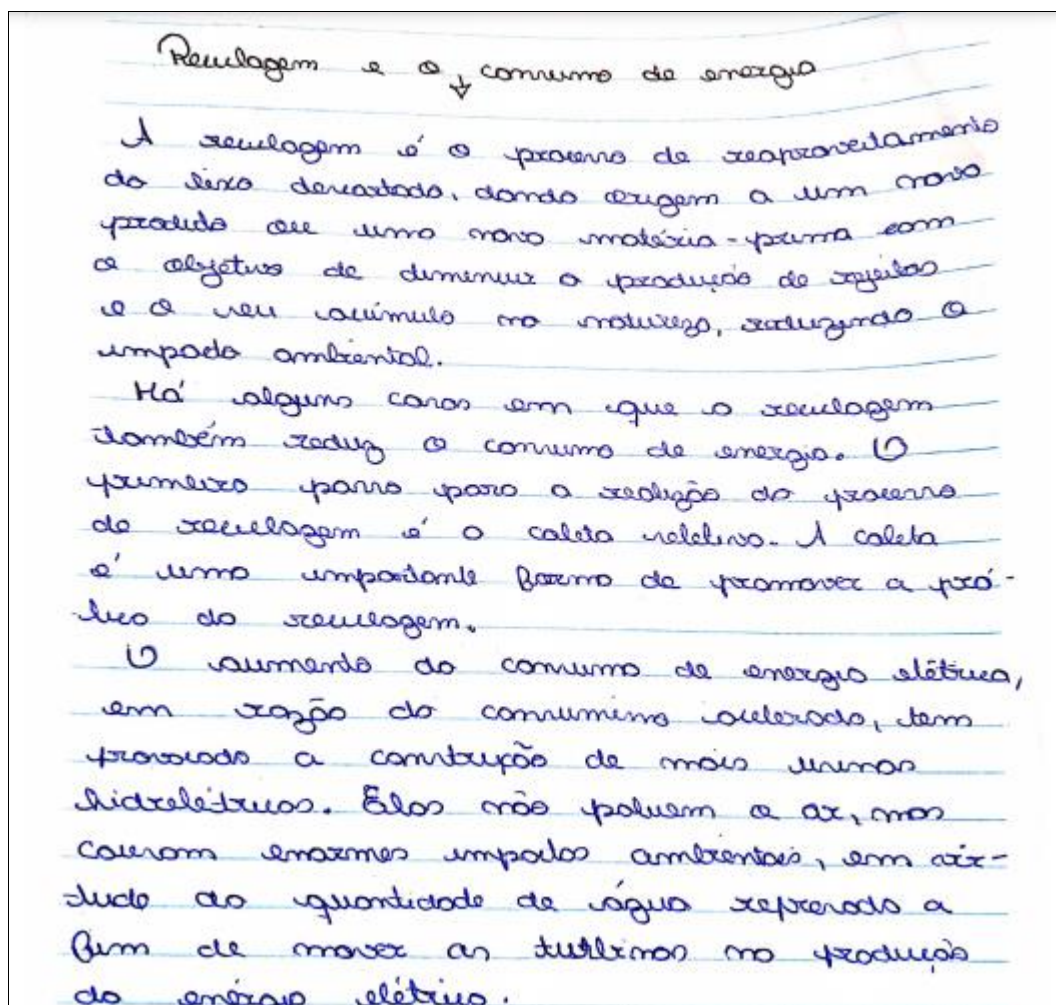 Reciclagem e o consumo de energia
A reciclagem é o processo de reaproveitamento
do lixo descartado, dando origem a um novo
produto ou uma nova matéria-prima com
o objetivo de diminuir a produção de rejeitos
e o seu acúmulo na natureza, reduzindo o
impacto ambiental.
Há alguns casos em que a reciclagem
também reduz o consumo de energia. O
primeiro passo para a realização do processo
de reciclagem é a coleta seletiva. A coleta
é uma importante forma de promover a prá-
tica da reciclagem.
O aumento do consumo de energia elétrica,
em razão do consumismo acelerado, tem
provocado a construção de mais usinas
hidrelétricas. Elas não poluem o ar, mas
causam enormes impactos ambientais, em vir-
tude da quantidade de água represada a
fim de mover as turbinas na produção
da energia elétrica.